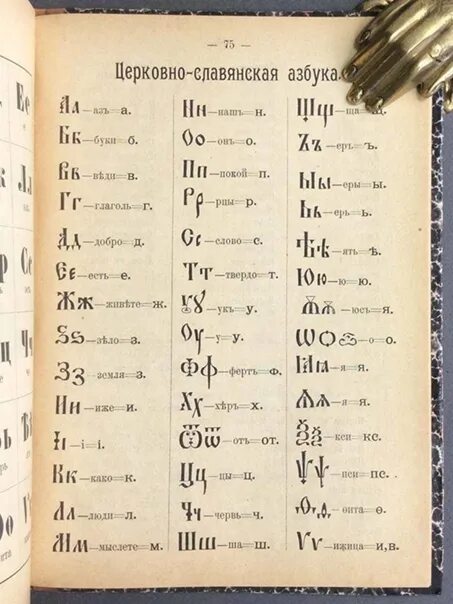 — 75 —
Церковно-славянская азбука
Аа—азъ=а.
Бб—буки=б.
Вв—вѣди=в.
Гг—глаголь=г.
Дд—добро=д.
Єє—есть=е.
Жж—живѣте=ж.
Ѕѕ—зѣло=з.
Зз—земля=з.
Ии—иже=и.
Іі—і=і.
Кк—како=к.
Лл—люди=л.
Мм—мыслете=м.
Нн—нашъ=н.
Оо—онъ=о.
Пп—покой=п.
Рр—рцы=р.
Сс—слово=с.
Тт—твердо=т.
Ꙋꙋ—укъ=у.
Оу—у=у.
Фф—фертъ=ф.
Хх—хѣръ=х.
Ѿѿ—отъ=от.
Цц—цы=ц.
Чч—червь=ч.
Шш—ша=ш.
Щщ—ща=щ.
Ъъ—еръ=ъ.
Ыы—еры=ы.
Ьь—ерь=ь.
Ѣѣ—ять=ѣ.
Юю—ю=ю.
Ѫѫ—юсъ=я.
Ѡѻ—о=о.
Ꙗꙗ—я=я.
Ѧѧ—я=я.
Ѯѯ—кси=кс.
Ѱѱ—пси=пс.
Ѳѳ—ѳита=ѳ.
Ѵѵ—ижица=и,в.